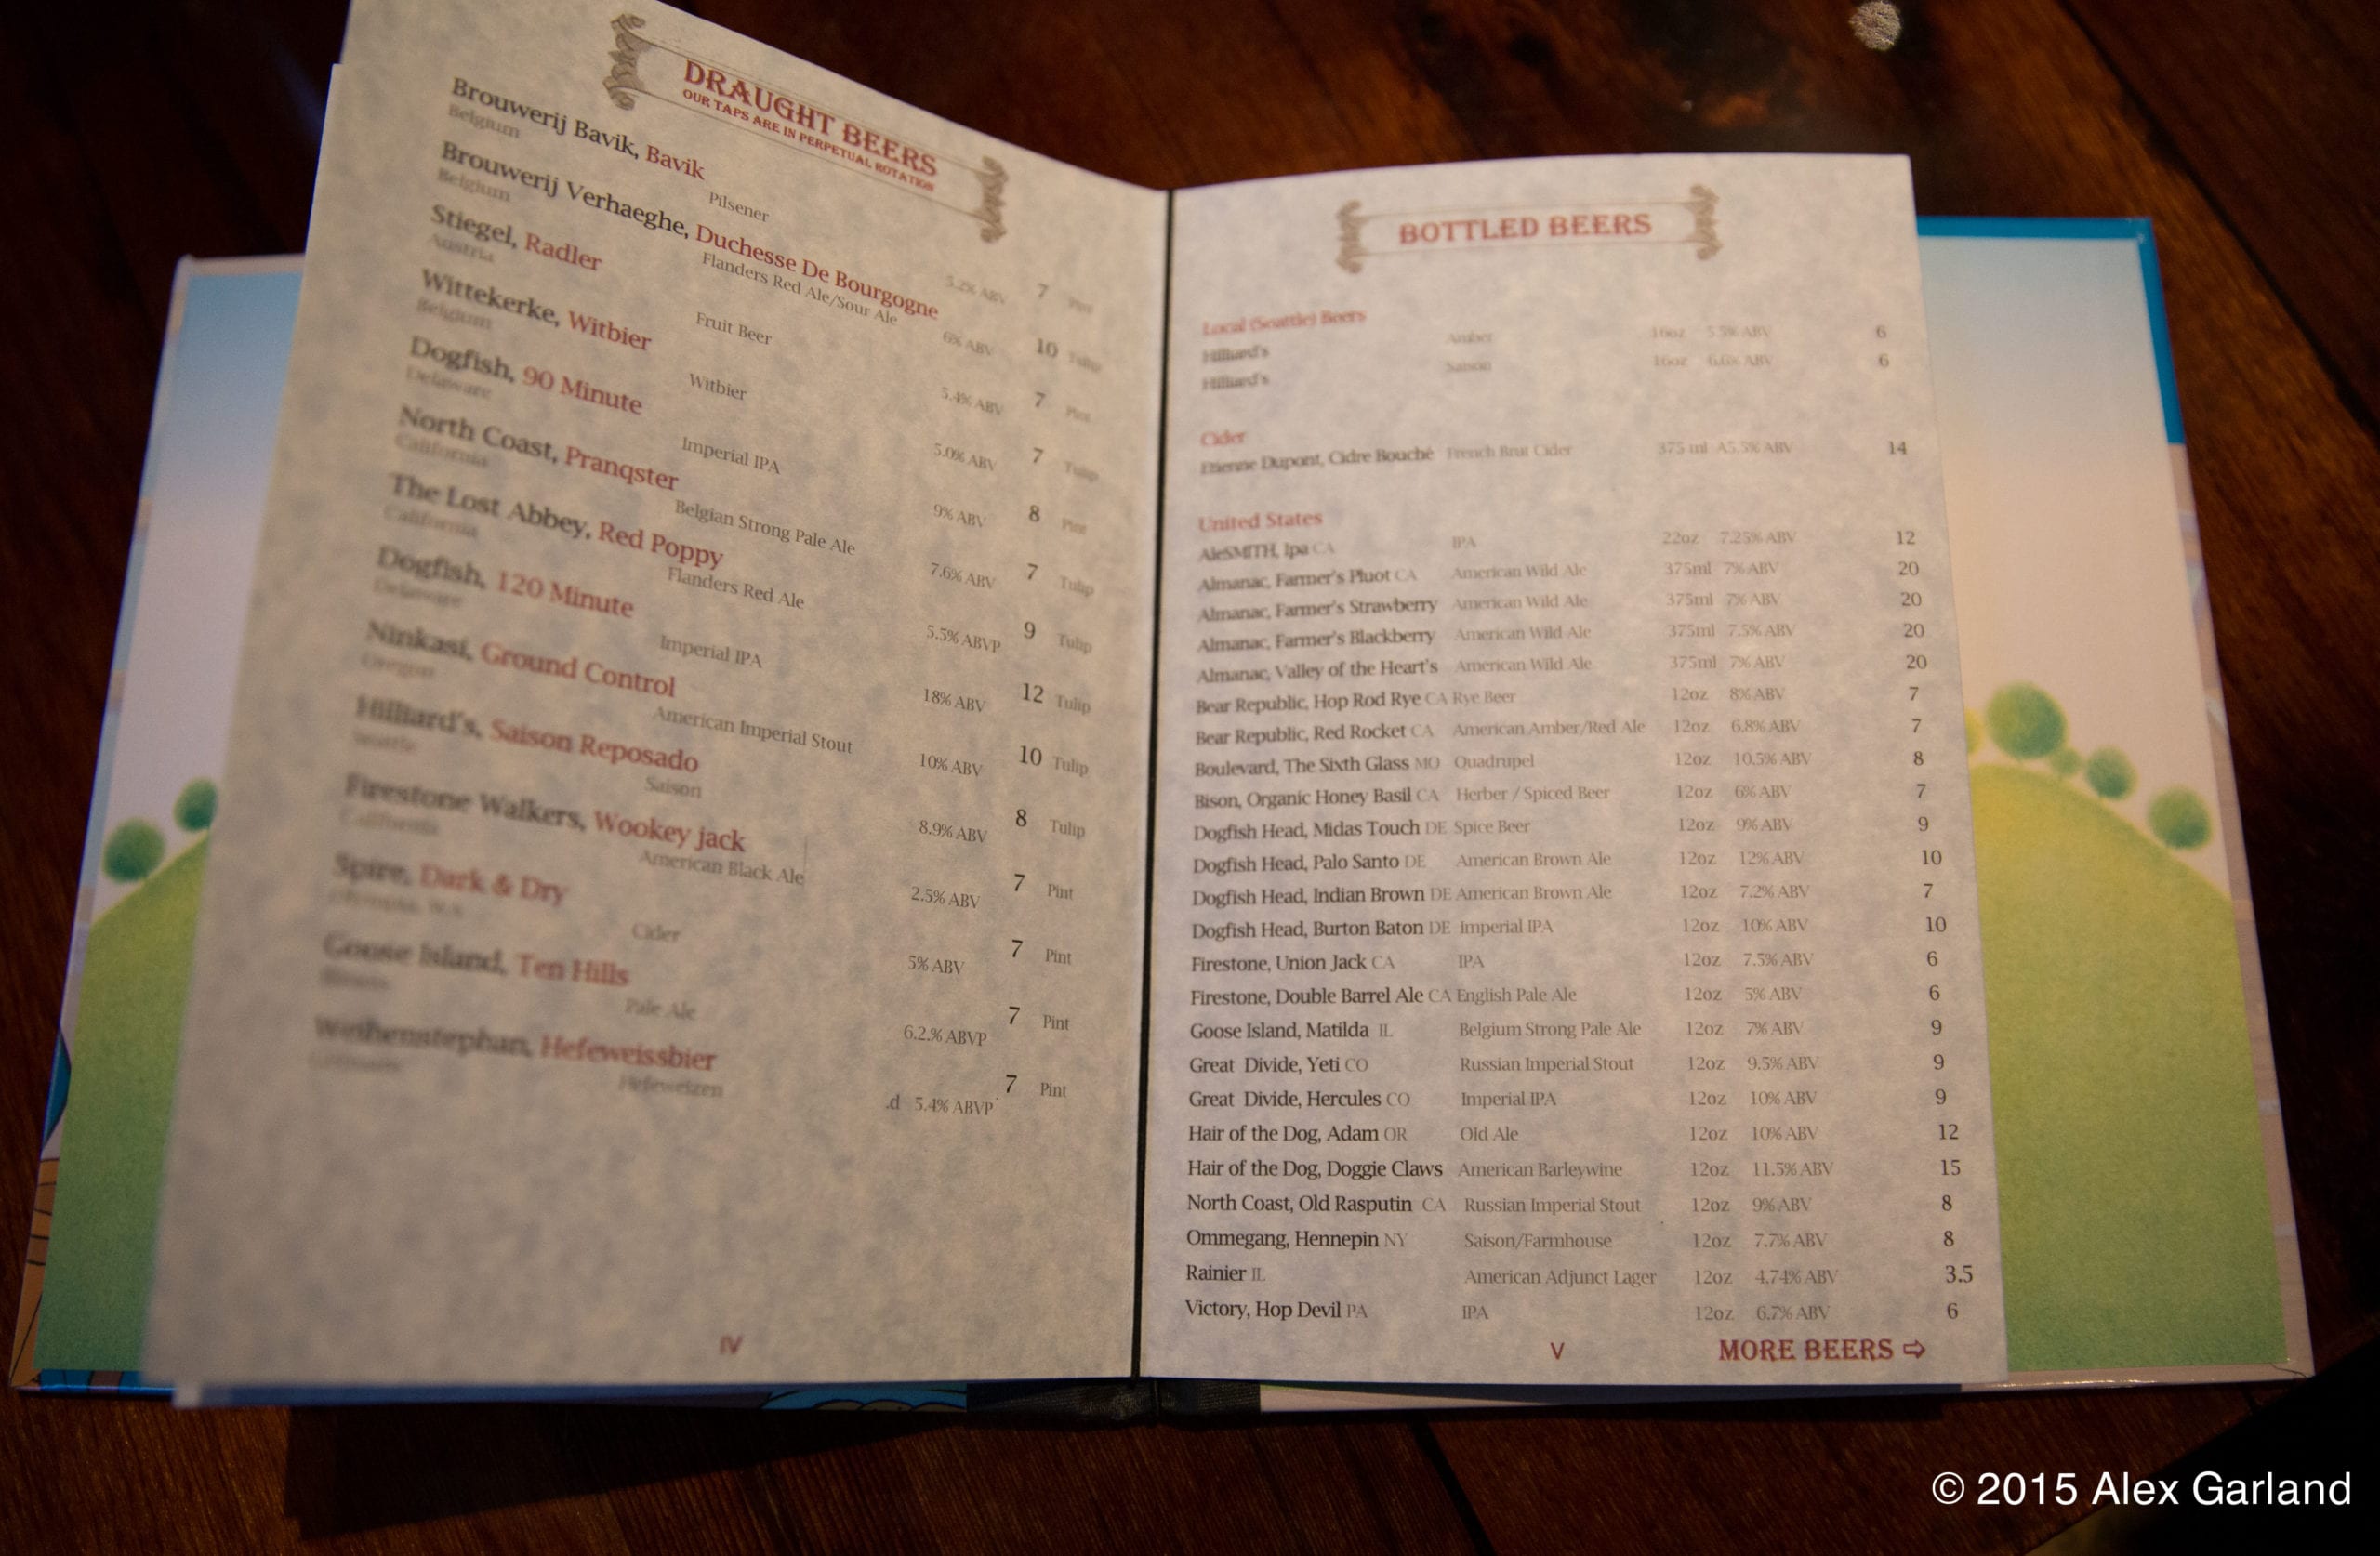 DRAUGHT BEERS
OUR TAPS ARE IN PERPETUAL ROTATION
Brouwerij Bavik, Bavik
Belgium
Pilsener
5.2% ABV 7 Pint
Brouwerij Verhaeghe, Duchesse De Bourgogne
Belgium
Flanders Red Ale/Sour Ale
6% ABV 10 Tulip
Stiegel, Radler
Austria
Fruit Beer
5.4% ABV 7 Pint
Wittekerke, Witbier
Belgium
Witbier
5.0% ABV 7 Tulip
Dogfish, 90 Minute
Delaware
Imperial IPA
9% ABV 8 Pint
North Coast, Pranqster
California
Belgian Strong Pale Ale
7.6% ABV 7 Tulip
The Lost Abbey, Red Poppy
California
Flanders Red Ale
5.5% ABVP 9 Tulip
Dogfish, 120 Minute
Delaware
Imperial IPA
18% ABV 12 Tulip
Ninkasi, Ground Control
Oregon
American Imperial Stout
10% ABV 10 Tulip
Hilliard's, Saison Reposado
Seattle
Saison
8.9% ABV 8 Tulip
Firestone Walkers, Wookey jack
California
American Black Ale
2.5% ABV 7 Pint
Spire, Dark & Dry
Cider
5% ABV 7 Pint
Goose Island, Ten Hills
Pale Ale
6.2.% ABVP 7 Pint
Weihenstephan, Hefeweissbier
Hefeweizen
.d 5.4% ABVP 7 Pint
IV
BOTTLED BEERS
Local (Seattle) Beers
Hilliard's Amber 16oz 5.5% ABV 6
Hilliard's Saison 16oz 6.6% ABV 6
Cider
Etienne Dupont, Cidre Bouché French Brut Cider 375 ml A5.5% ABV 14
United States
AleSMITH, Ipa CA IPA 22oz 7.25% ABV 12
Almanac, Farmer's Pluot CA American Wild Ale 375ml 7% ABV 20
Almanac, Farmer's Strawberry American Wild Ale 375ml 7% ABV 20
Almanac, Farmer's Blackberry American Wild Ale 375ml 7.5% ABV 20
Almanac, Valley of the Heart's American Wild Ale 375ml 7% ABV 20
Bear Republic, Hop Rod Rye CA Rye Beer 12oz 8% ABV 7
Bear Republic, Red Rocket CA American Amber/Red Ale 12oz 6.8% ABV 7
Boulevard, The Sixth Glass MO Quadrupel 12oz 10.5% ABV 8
Bison, Organic Honey Basil CA Herber / Spiced Beer 12oz 6% ABV 7
Dogfish Head, Midas Touch DE Spice Beer 12oz 9% ABV 9
Dogfish Head, Palo Santo DE American Brown Ale 12oz 12% ABV 10
Dogfish Head, Indian Brown DE American Brown Ale 12oz 7.2% ABV 7
Dogfish Head, Burton Baton DE Imperial IPA 12oz 10% ABV 10
Firestone, Union Jack CA IPA 12oz 7.5% ABV 6
Firestone, Double Barrel Ale CA English Pale Ale 12oz 5% ABV 6
Goose Island, Matilda IL Belgium Strong Pale Ale 12oz 7% ABV 9
Great Divide, Yeti CO Russian Imperial Stout 12oz 9.5% ABV 9
Great Divide, Hercules CO Imperial IPA 12oz 10% ABV 9
Hair of the Dog, Adam OR Old Ale 12oz 10% ABV 12
Hair of the Dog, Doggie Claws American Barleywine 12oz 11.5% ABV 15
North Coast, Old Rasputin CA Russian Imperial Stout 12oz 9% ABV 8
Ommegang, Hennepin NY Saison/Farmhouse 12oz 7.7% ABV 8
Rainier IL American Adjunct Lager 12oz 4.74% ABV 3.5
Victory, Hop Devil PA IPA 12oz 6.7% ABV 6
V
MORE BEERS ⇨
© 2015 Alex Garland